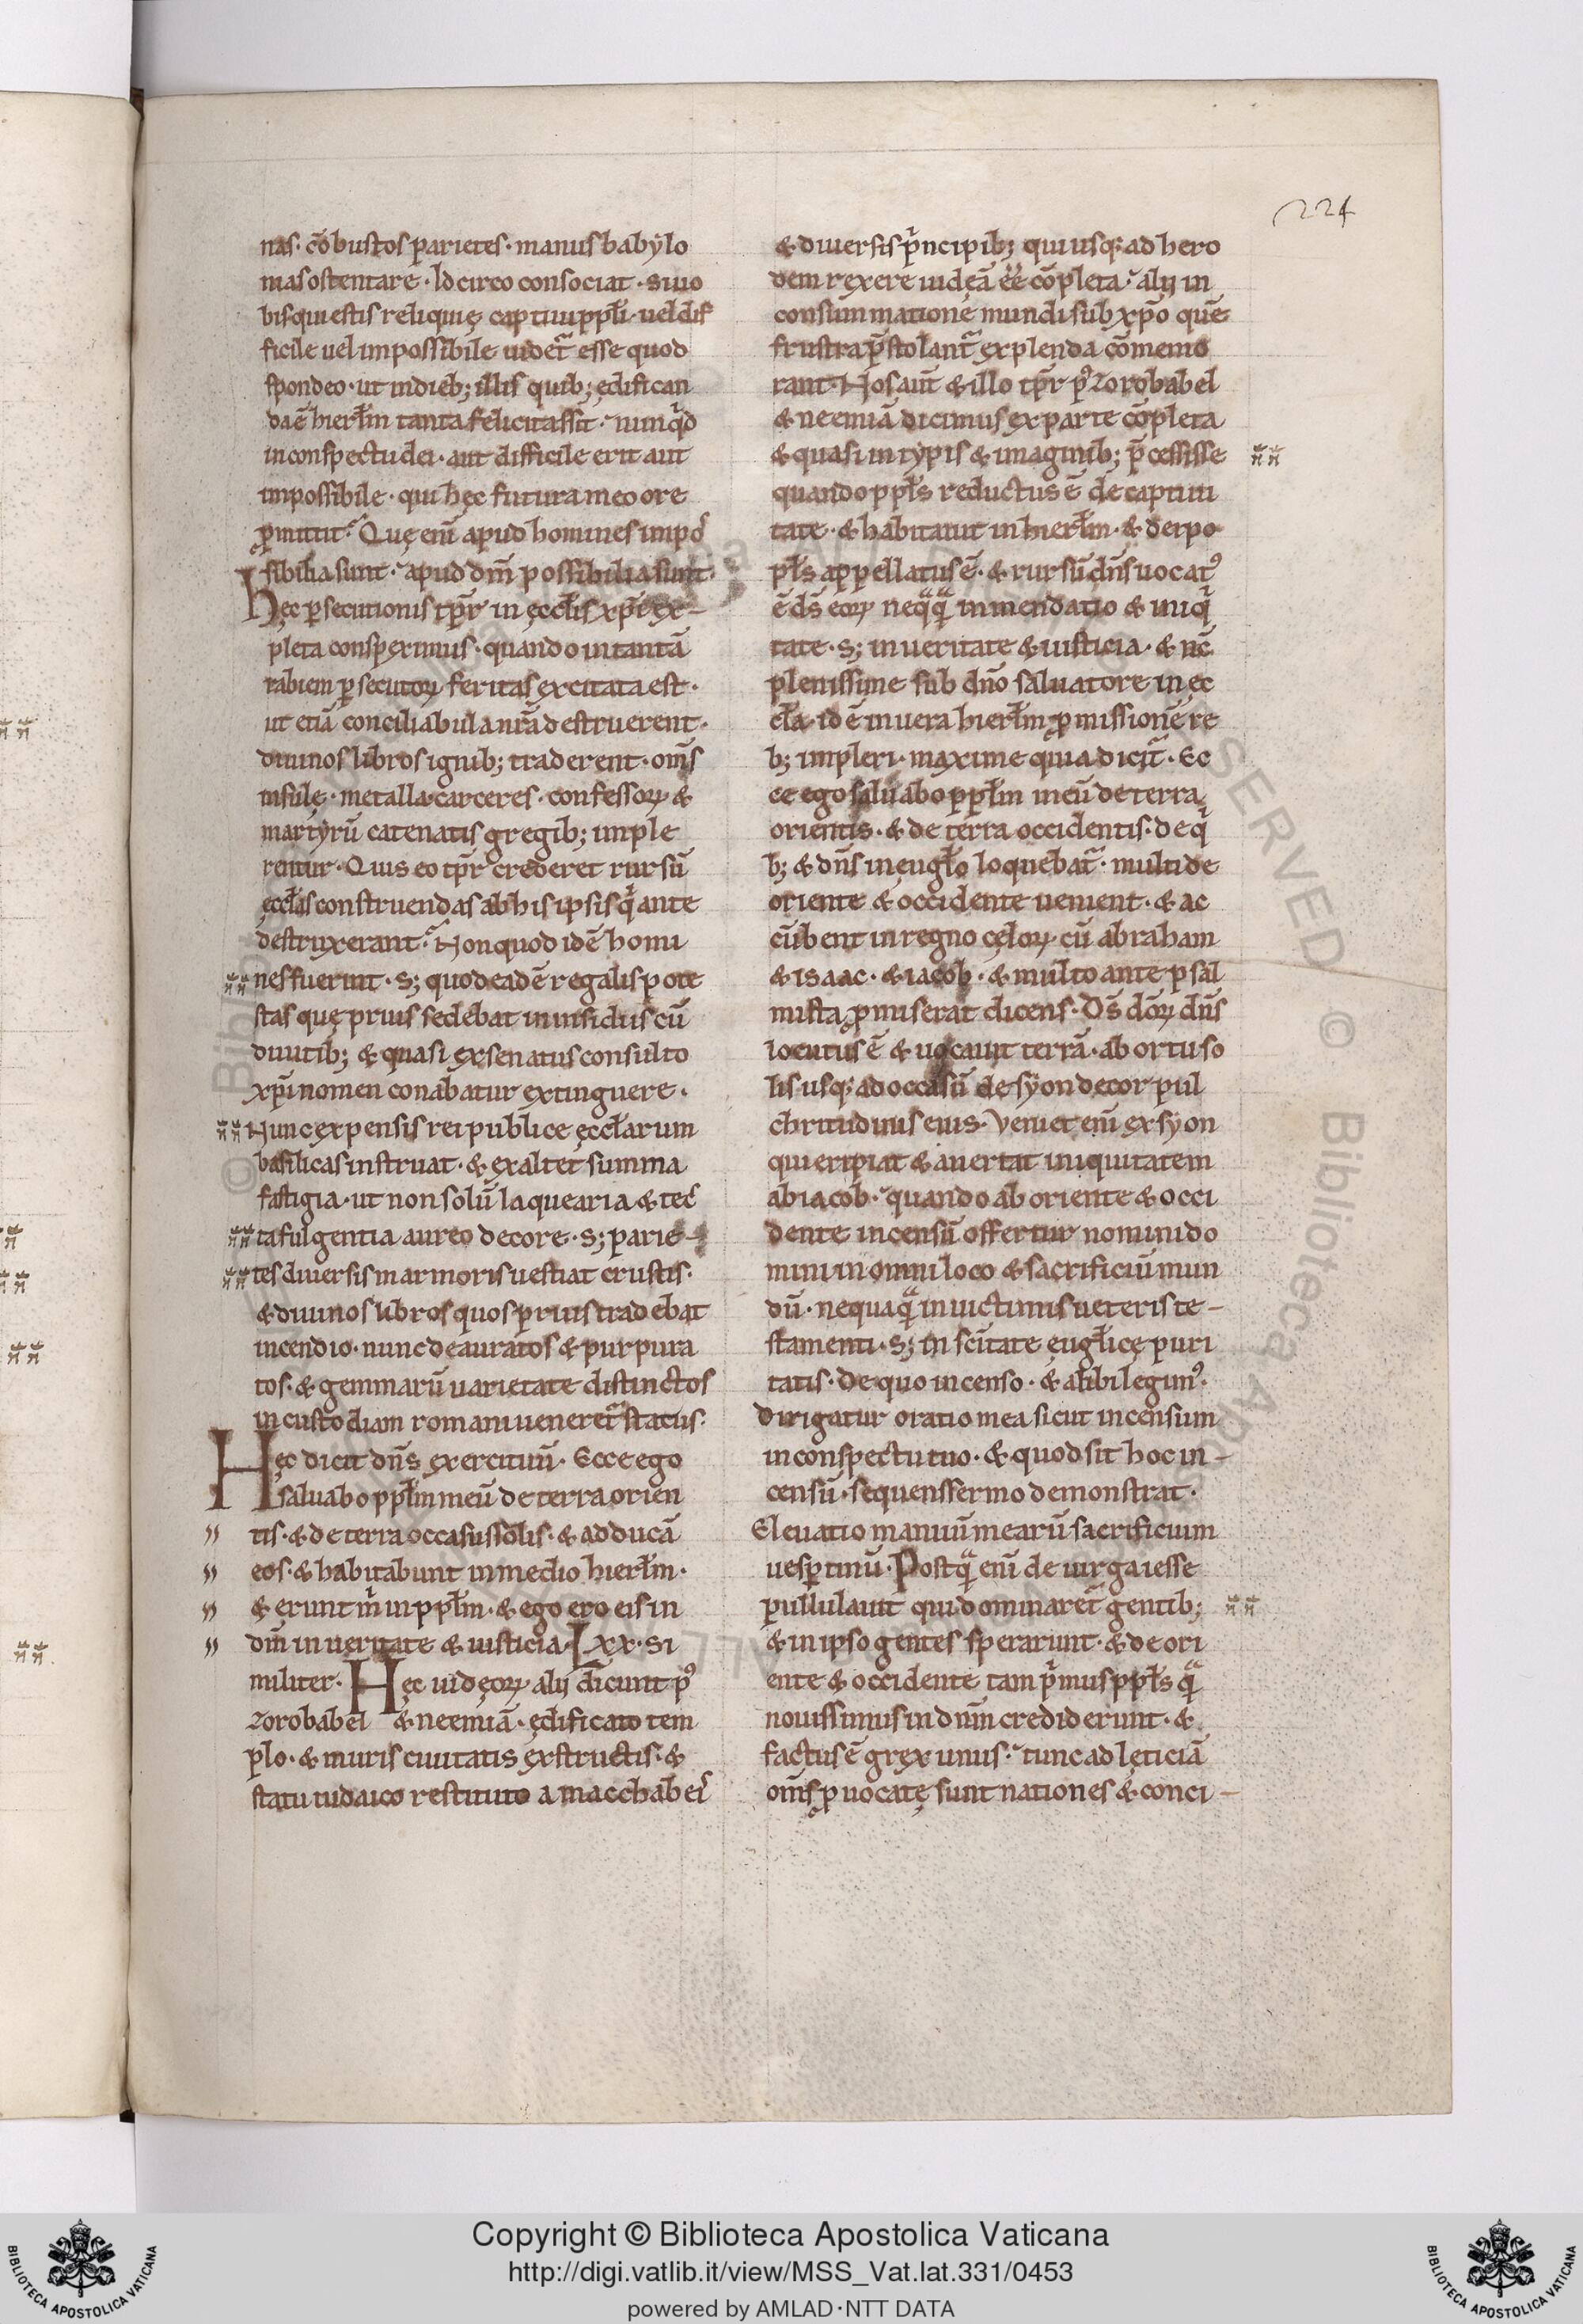 224
nas· cōbustos parietes· manus babẏlo
nias ostentare· Idcirco consociat· Si uo
bis qui estis reliquię captiui ppłi· uel dif
ficile uel impossibile uidet᷑ esse quod
spondeo· ut in dieb; illis quib; ędifican
da ē hierłm tanta felicitas sit· nunqͥd
in conspectu dei· aut difficile erit aut
impossibile· qui hęc futura meo ore
ꝓmittit· Quę eni͂ apud homines impos
sibilia sunt· apud dm̄ possibilia sunt·
Hęc ꝑsecutionis tp̄r in ęccłis xp̄i ex-
pleta conspeximus· quando in tantā
rabiem ꝑsecutoꝝ feritas excitata est·
ut etiā conciliabula nr̄a destruerent·
diuinos libros ignib; traderent· om̄s
insulę· metalla carceres· confessoꝝ &
martẏrū catenatis gregib; imple
rentur· Quis eo tp̄r crederet rursū
ęccłas construendas ab his ipsis qͥ ante
destruxerant· Non quod idē homi
nes fuerint· s; quod eadē regalis pote
stas quę prius sedebat in insidiis cū
diuitib; & quasi ex senatus consulto
xp̄i nomen conabatur extinguere·
Nunc expensis rei publice ęccłarum
basilicas instruat· & exaltet summa
fastigia· ut non solū laquearia & tec
ta fulgentia aureo decore· s; parie-
tes diuersis marmoris uestiat crustis·
& diuinos libros quos prius tradebat
incendio· nunc deauratos & purpura
tos· & gemmarū uarietate distinctos
in custodiam romani ueneret᷑ status·
Hęc dicit dn̄s exercituū· Ecce ego
saluabo ppłm meū de terra orien
tis· & de terra occasus solis· & adducā
eos· & habitabunt in medio hierłm·
& erunt mͥ in ppłm· & ego ero eis in
dm̄ in ueritate & iusticia· LXX· Si
militer· Hęc iudęoꝝ alij dicunt pꝰ
zorobabel & neemiā· ędificato tem
plo· & muris ciuitatis exstructis· &
statu iudaico restituto a macchabeis
& diuersis pͥncipib; qui usq; ad hero
dem rexere iudęā ēē cōpleta· alij in
consummatione mundi sub xp̄o quē
frustra p̄stolant᷑ explenda cōmemo
rant· Nos aut̄ & illo tp̄r pꝰ zorobabel
& neemiā dicimus ex parte cōpleta
& quasi in typis & imaginib; p̄cessisse
quando ppłs reductus ē de captiui
tate· & habitauit in hierłm· & dei po
płs appellatus ē· & rursū dn̄s uocatꝰ
ē ds̄ eoꝝ neqͣqͣ in mendatio & iniqͥ
tate· s; in ueritate & iusticia· & nc̄
plenissime sub dn̄o saluatore in ęc
cła· id ē in uera hierłm ꝓmissionē re
b; impleri· maxime quia dicit᷑· Ec
ce ego saluabo ppłm meū de terra
orientis· & de terra occidentis· de qͥ
b; & dn̄s in eugło loquebat᷑· multi de
oriente & occidente uenient· & ac
cūbent in regno cęloꝝ cū abraham
& isaac· & iacob· & multo ante psal
mista ꝓmiserat dicens· Ds̄ doꝝ dn̄s
locutus ē & uocauit terrā· ab ortu so
lis usq; ad occasū de sẏon decor pul
chritudinis eius· Veniet eni͂ ex syon
qui eripiat & auertat iniquitatem
ab iacob· quando ab oriente & occi
dente incensū offertur nomini do
mini in omni loco & sacrificiū mun
dū· nequaqͣ in uictimis ueteris te-
stamenti· s; in sci͂tate eugłicę puri
tatis· de quo incenso· & alibi legimꝰ·
Dirigatur oratio mea sicut incensum
in conspectu tuo· & quod sit hoc in-
censū· sequens sermo demonstrat·
Eleuatio manuū mearū sacrificium
uesꝑtinū· Postqͣ eni͂ de uirga iesse
pullulauit qui dominaret᷑ gentib;
& in ipso gentes sperarunt· & de ori
ente & occidente tam pͥmus ppłs qͣ
nouissimus in dn̄m crediderunt· &
factus ē grex unus· tunc ad lęticiā
om̄s ꝓuocatę sunt nationes & conci-
Copyright © Biblioteca Apostolica Vaticana
http://digi.vatlib.it/view/MSS_Vat.lat.331/0453
powered by AMLAD·NTT DATA
BIBLIOTECA APOSTOLICA VATICANA
BIBLIOTECA APOSTOLICA VATICANA